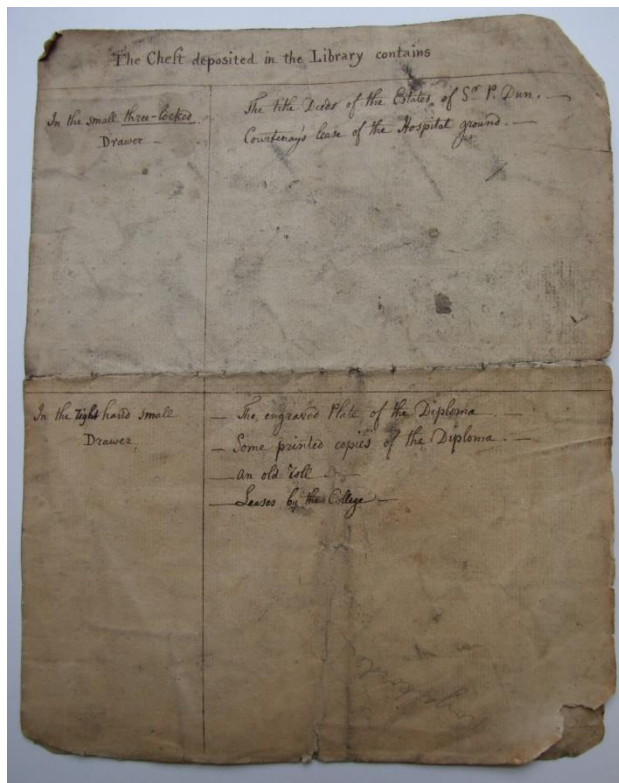 The Chest deposited in the Library contains
In the small three-locked
Drawer —
The title Deeds of the Estates, of Sr. P. Dun. —
Courtenay's lease of the Hospital ground. —
In the right hand small
Drawer
— The, engraved Plate of the Diploma
— Some printed copies of the Diploma. —
— an old roll —
— Leases by the College —